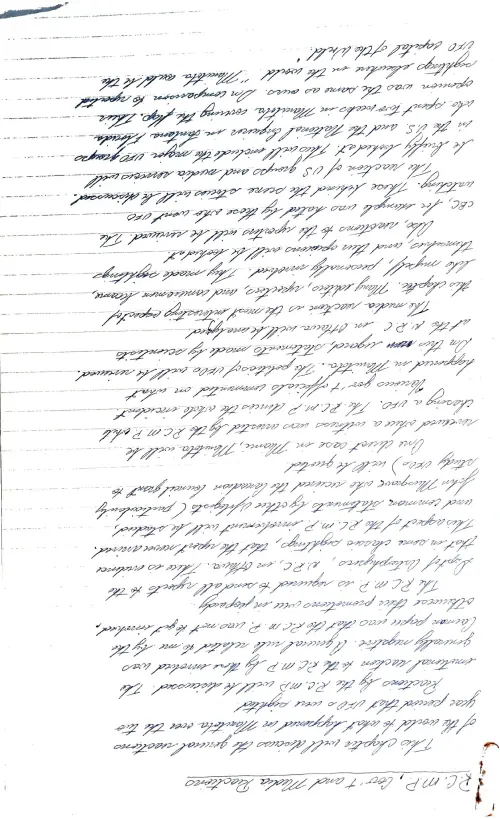 R.C.M.P., Gov't and Media Reactions
This chapter will discuss the general reactions
of the world to what happened in Manitoba over the two
year period that UFOs were sighted
Reactions by the R.C.M.P. will be discussed. The
emotional reaction to the R.C.M.P. by those involved was
generally negative. A general rule related to me by the
Carman paper was that the R.C.M.P. was not to get involved,
otherwise their promotions were in jeopardy.
The R.C.M.P. is required to send all reports to the
Dept of Astrophysics, N.R.C. in Ottawa. There is evidence
that in some classic sightings, that the report never arrived.
This aspect of the R.C.M.P. involvement will be studied,
and common statements by pilots (particularly
John Musgrave who received the Canadian Council grant to
study UFOs) will be quoted
One direct case in Miami, Manitoba will be
reviewed when a witness was arrested by the R.C.M.P. while
chasing a UFO. The R.C.M.P. denies the whole incident
Various gov't officials commented on what
happened in Manitoba. The politics of UFOs will be reviewed.
In this regard, statements made by scientists
at the N.R.C. in Ottawa will be analyzed
The media reaction is the most interesting aspect of
this chapter. Many editors, reporters, and cameramen became,
like myself, personally involved. They made sightings
themselves, and their opinions will be looked at
Also, reactions to the reporters will be reviewed. The
CBC for example was hated by those who went UFO
watching. These behind the scene stories will be discussed.
The reaction of US groups and media services will
be briefly looked at. This will include the major UFO groups
in the U.S. and the National Enquirer in Lantana Florida
who spent two weeks in Manitoba covering the flap. Their
opinion was the same as ours. In comparison to reported
sightings elsewhere in the world "Manitoba could be the
UFO capital of the World"